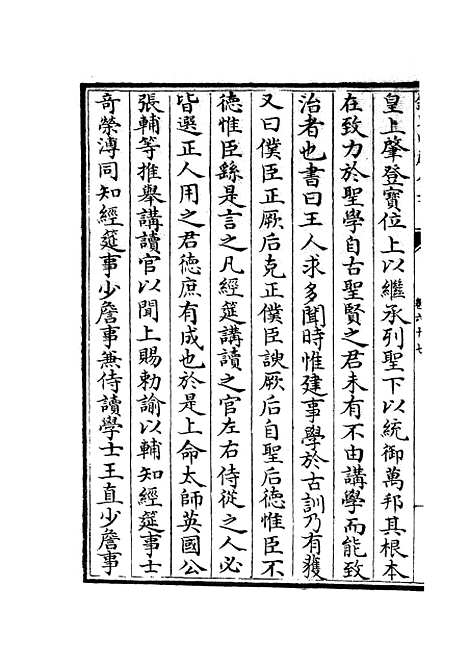 卷六十七
皇上肇登寶位上以繼承列聖下以統御萬邦其根本
在致力於聖學自古聖賢之君未有不由講學而能致
治者也書曰王人求多聞時惟建事學於古訓乃有獲
又曰僕臣正厥后克正僕臣諛厥后自聖后德惟臣不
德惟臣繇是言之凡經筵講讀之官左右侍從之人必
皆選正人用之君德庶有成也於是上命太師英國公
張輔等推舉講讀官以聞上賜勅諭以輔知經筵事士
奇榮溥同知經筵事少詹事兼侍讀學士王直少詹事